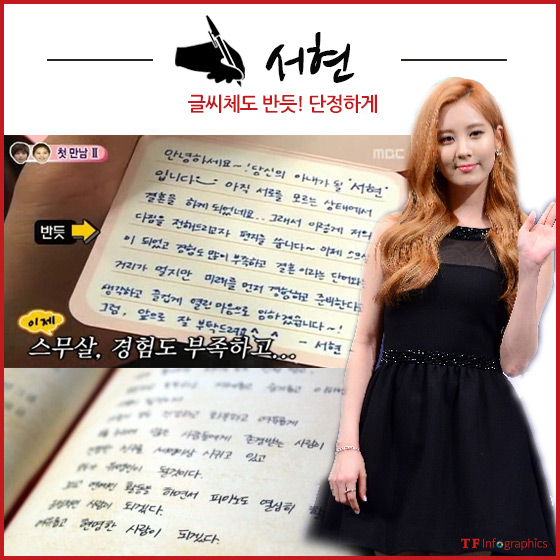 서현
글씨체도 반듯! 단정하게
첫 만남 II
MBC
안녕하세요~! 당신의 아내가 될 "서현"
입니다 아직 서로를 모르는 상태에서
결혼을 하게 되었네요... 그래서 이렇게 저의
다짐을 전해드리고자 편지를 씁니다~ 이제 스무살
이 되었고 경험도 많이 부족하고 결혼이라는 단어와는
거리가 멀지만 미래를 먼저 경험하고 준비한다고
생각하고 즐겁게 열린 마음으로 임하겠습니다~!
그럼, 앞으로 잘 부탁드려요^^ - 서현
반듯
이제
스무살, 경험도 부족하고...
사람들에게 존경받는 사람이
사귀고 있고
유명인이 된것이다.
하면서 피아노도 열심히
사람이 되겠다.
현명한 사람이 되겠다.
TF Infographics